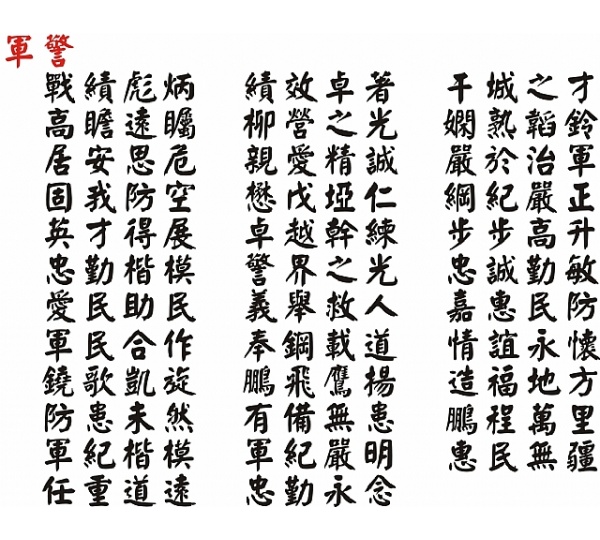 軍警
戰績彪炳
高瞻遠矚
居安思危
固我防空
英才得展
忠勤楷模
愛民助民
軍民合作
鐃歌凱旋
防患未然
軍紀楷模
任重道遠
績效卓著
柳營之光
親愛精誠
懋戊埡仁
卓越幹練
警界之光
義舉救人
奉鋼載道
鵬飛鷹揚
有備無患
軍紀嚴明
忠勤永念
干城之才
嫻熟韜鈴
嚴於治軍
綱紀嚴正
步步高升
忠誠勤敏
嘉惠民防
情誼永懷
造福地方
鵬程萬里
惠民無疆